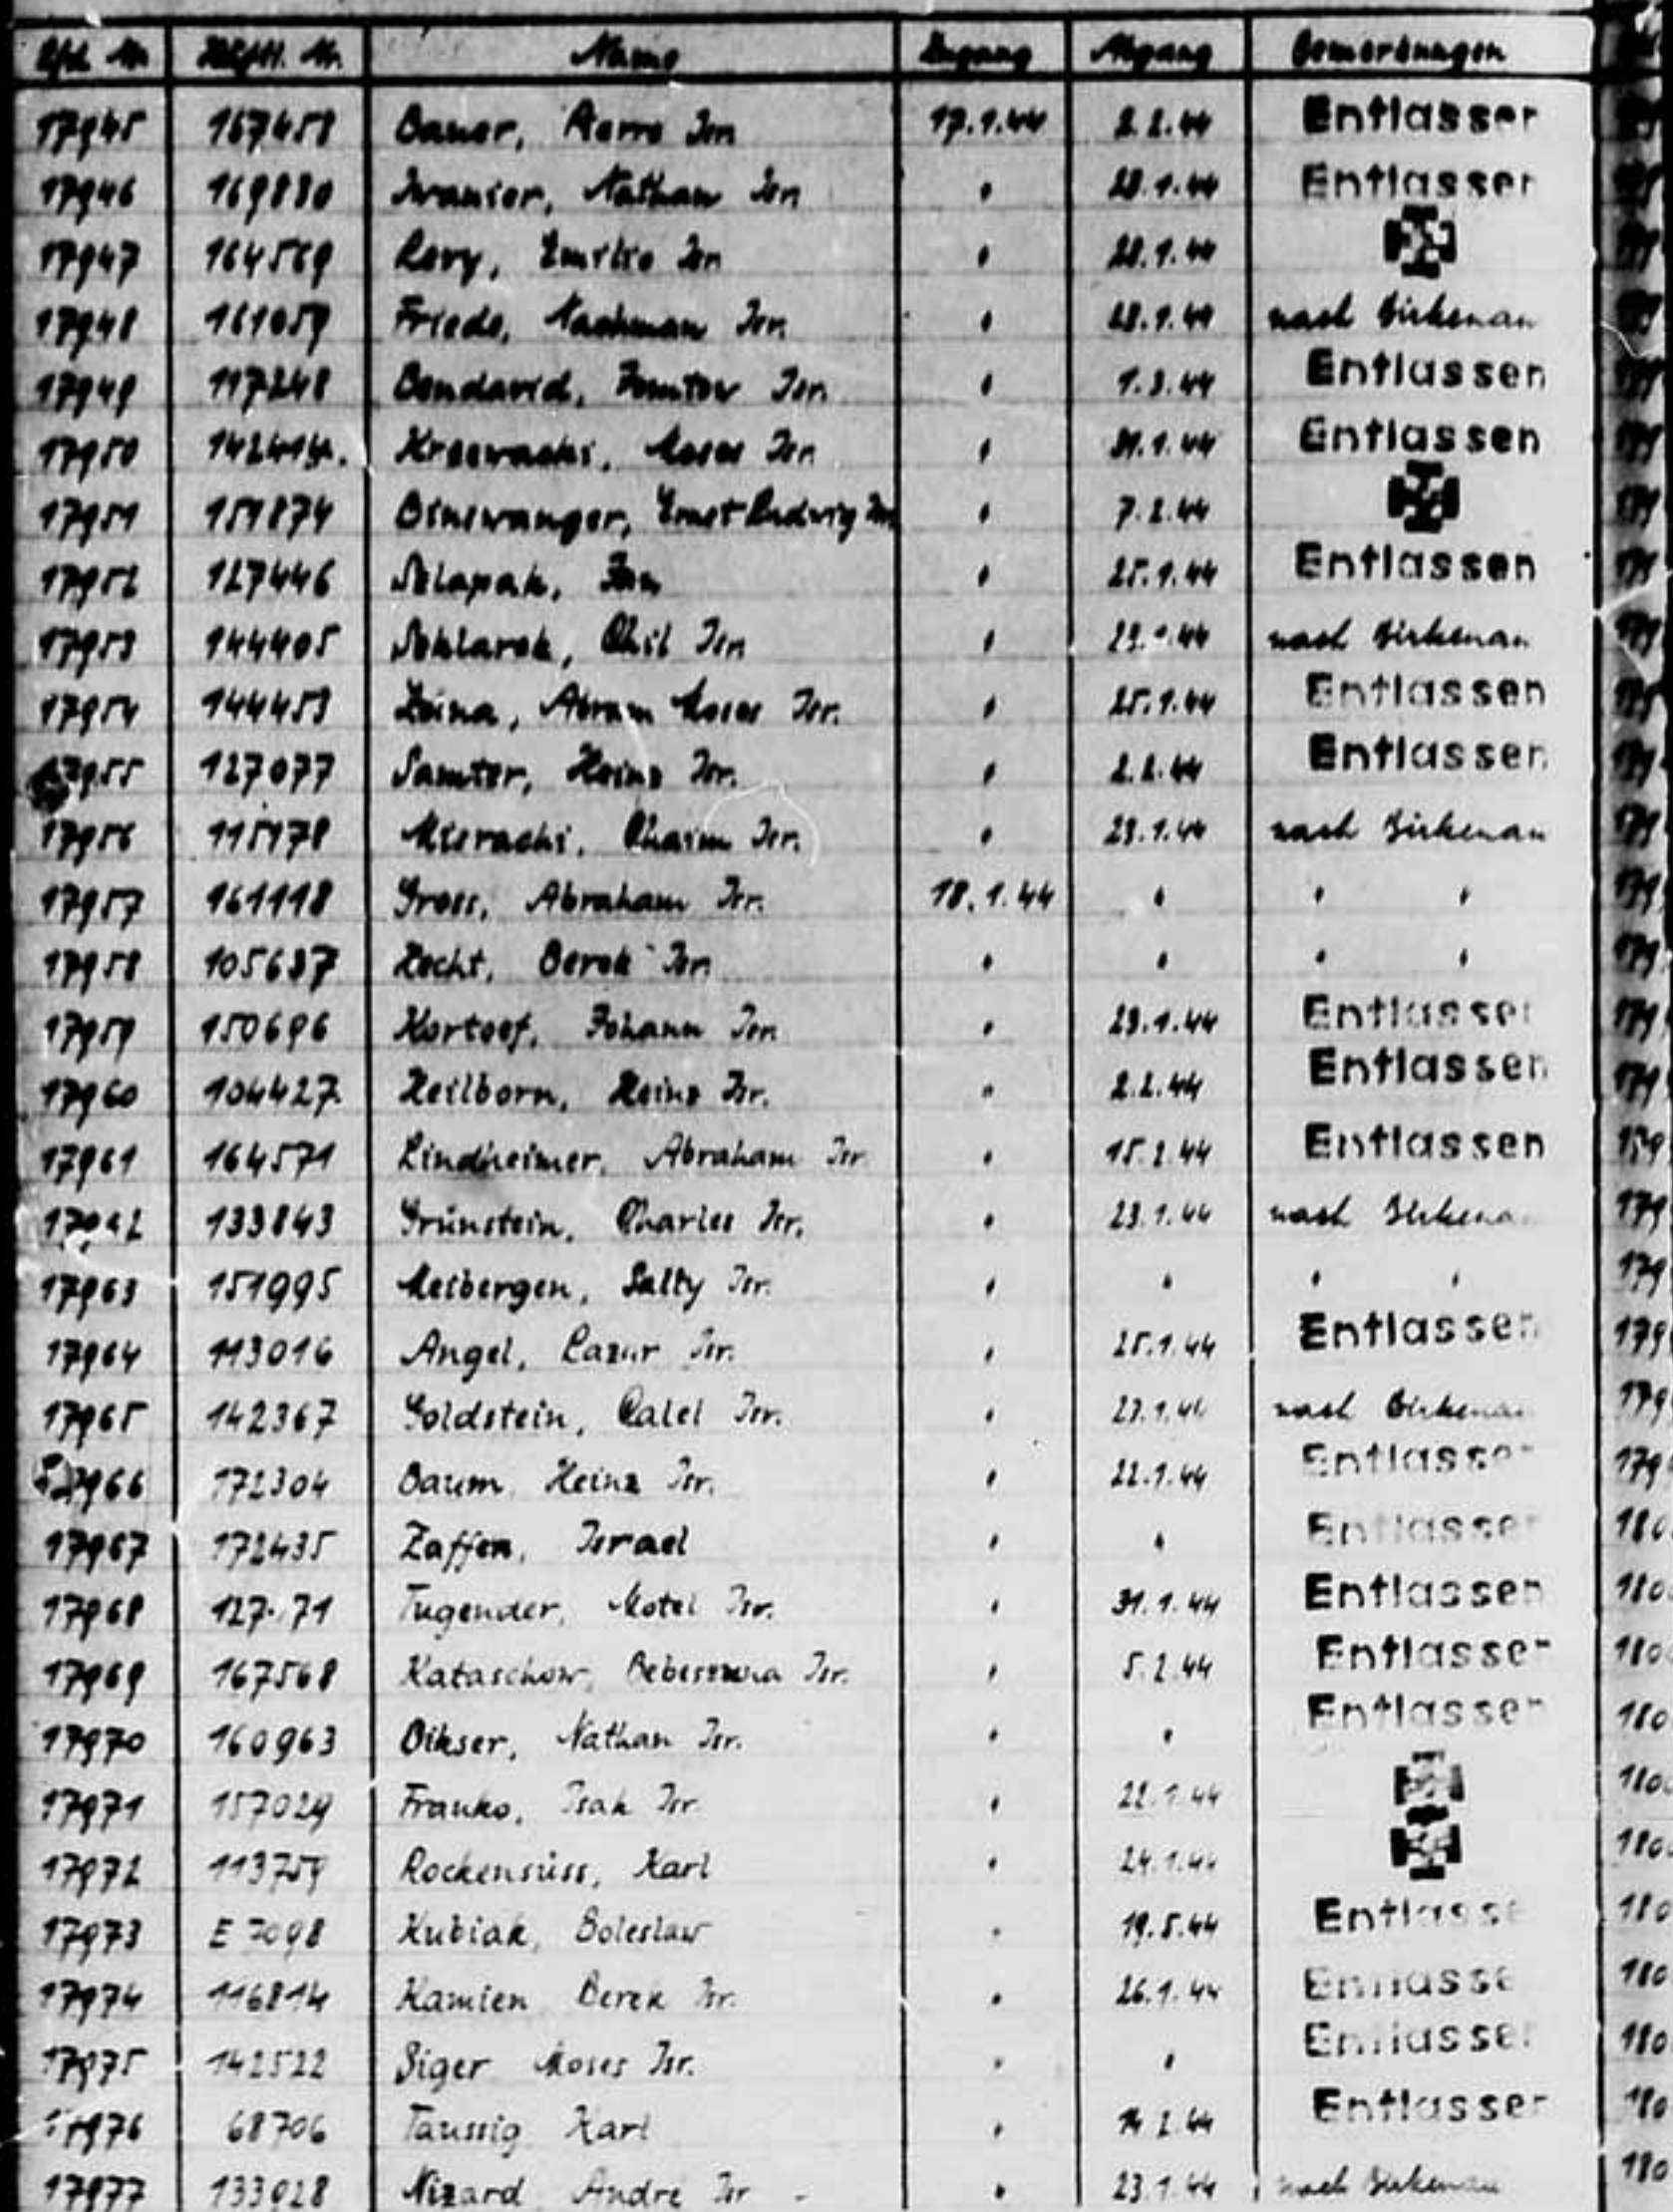 Lfd. Nr. Häftl. Nr. Name Zugang Abgang Bemerkungen
17945 167458 Bauer, Isr. 17.1.44 2.2.44 Entlassen
17946 169880 Iwanier, Nathan Isr. " 28.1.44 Entlassen
17947 164569 Levy, Emilio Isr. " 28.1.44
17948 161059 Friede, Nachman Isr. " 28.1.44 nach Birkenau
17949 117248 Bendavid, Isr. " 1.3.44 Entlassen
17950 Moses Isr. " 31.1.44 Entlassen
17951 151874 Binswanger, Ernst Ludwig Isr. " 7.2.44
17952 127446 Jan " 25.1.44 Entlassen
17953 144405 Sohlarek, Chil Isr. " 44 nach Birkenau
17954 144453 Abram Moses Isr. " 25.1.44 Entlassen
17955 127077 Samter, Heinz Isr. " 2.2.44 Entlassen
17956 115178 Misrachi, Chaim Isr. " 23.1.44 nach Birkenau
17957 161118 Gross, Abraham Isr. 18.1.44 " " "
17958 105637 Hecht, Berek Isr. " " " "
17959 150696 Johann Isr. " 29.1.44 Entlassen
17960 104427 Heilborn, Heinz Isr. " 2.2.44 Entlassen
17961 164571 Lindheimer, Abraham Isr. " 15.2.44 Entlassen
133843 Grünstein, Charles Isr. " 23.1.44 nach Birkenau
17963 151995 Meibergen, Sally Isr. " " " "
17964 113016 Angel, Lazar Isr. " 25.1.44 Entlassen
17965 142367 Goldstein, Calel Isr. " 23.1.44 nach Birkenau
17966 172304 Baum, Heinz Isr. " 22.1.44 Entlassen
17967 172435 Zaffen, Israel " " Entlassen
17968 Tugender, Motel Isr. " 31.1.44 Entlassen
17969 167568 Kataschow, Isr. " 5.2.44 Entlassen
17970 160963 Bikser, Nathan Isr. " " Entlassen
17971 157029 Franko, Isak Isr. " 22.1.44
17972 113759 Rockensüss, Karl " 24.1.44
17973 Kubiak, Boleslaw " 19.5.44 Entlassen
17974 116814 Kamien Berek Isr. " 26.1.44 Entlassen
17975 142522 Siger Moses Isr. " " Entlassen
17976 68706 Taussig Karl " 14.2.44 Entlassen
17977 133028 Nizard André Isr. " 23.1.44 nach Birkenau